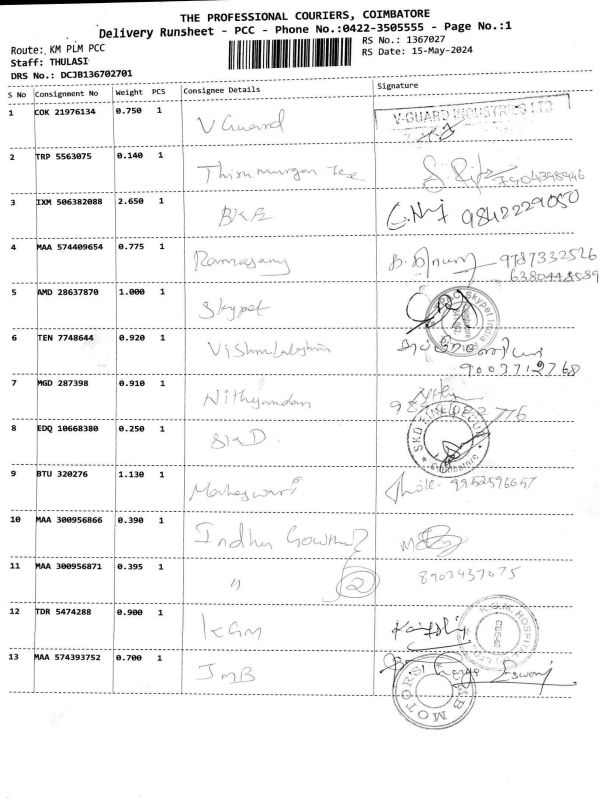 THE PROFESSIONAL COURIERS, COIMBATORE
Delivery Runsheet - PCC - Phone No.:0422-3505555 - Page No.:1
Route: KM PLM PCC
RS No.: 1367027
Staff: THULASI
RS Date: 15-May-2024
DRS No.: DCJB136702701
S No Consignment No Weight PCS Consignee Details Signature
1 COK 21976134 0.750 1 V Guard V-GUARD INDUSTRIES LTD
2 TRP 5563075 0.140 1 Thirumurgan Tex
3 IXM 506382088 2.650 1 BKE 9842229050
4 MAA 574409654 0.775 1 Ramasamy 9787332526
6380448589
5 AMD 28637870 1.000 1 Skypet Skypet India
6 TEN 7748644 0.920 1
9003712768
7 MGD 287398 0.910 1 Nithyandan
8 EDQ 10668380 0.250 1 SKD SKD FINE DECOR Coimbatore
9 BTU 320276 1.130 1 Maheswari 9952596657
10 MAA 300956866 0.390 1 Indhu
11 MAA 300956871 0.395 1 〃 2 8903437075
12 TDR 5474288 0.900 1 KGM K.G.M. HOSPITAL
13 MAA 574393752 0.700 1 JMB JMB MOTORS